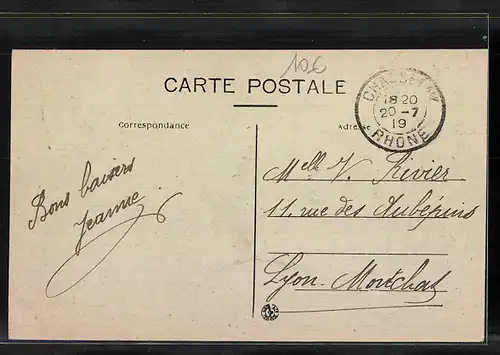 106
CARTE POSTALE
CHASSELAY
18 20
20 -7
19
RHÔNE
Correspondance
Adresse
Bons baisers
Jeanne
Melle V. Rivier
11. rue des Aubépins
Lyon-Montchat